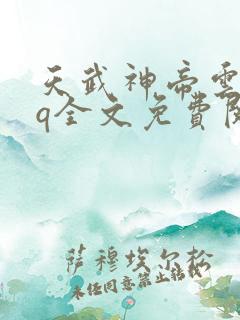 天武神帝雲
q全文免費閱
萨穆埃尔松
未经同意禁止转载